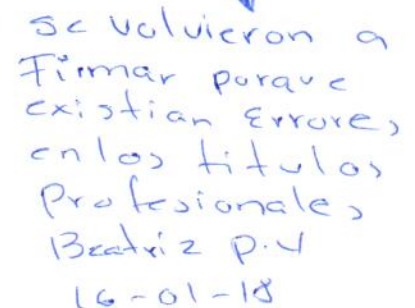 se volvieron a
Firmar porque
existian Errores
en los titulos
Profesionales
Beatriz P.V
16-01-18